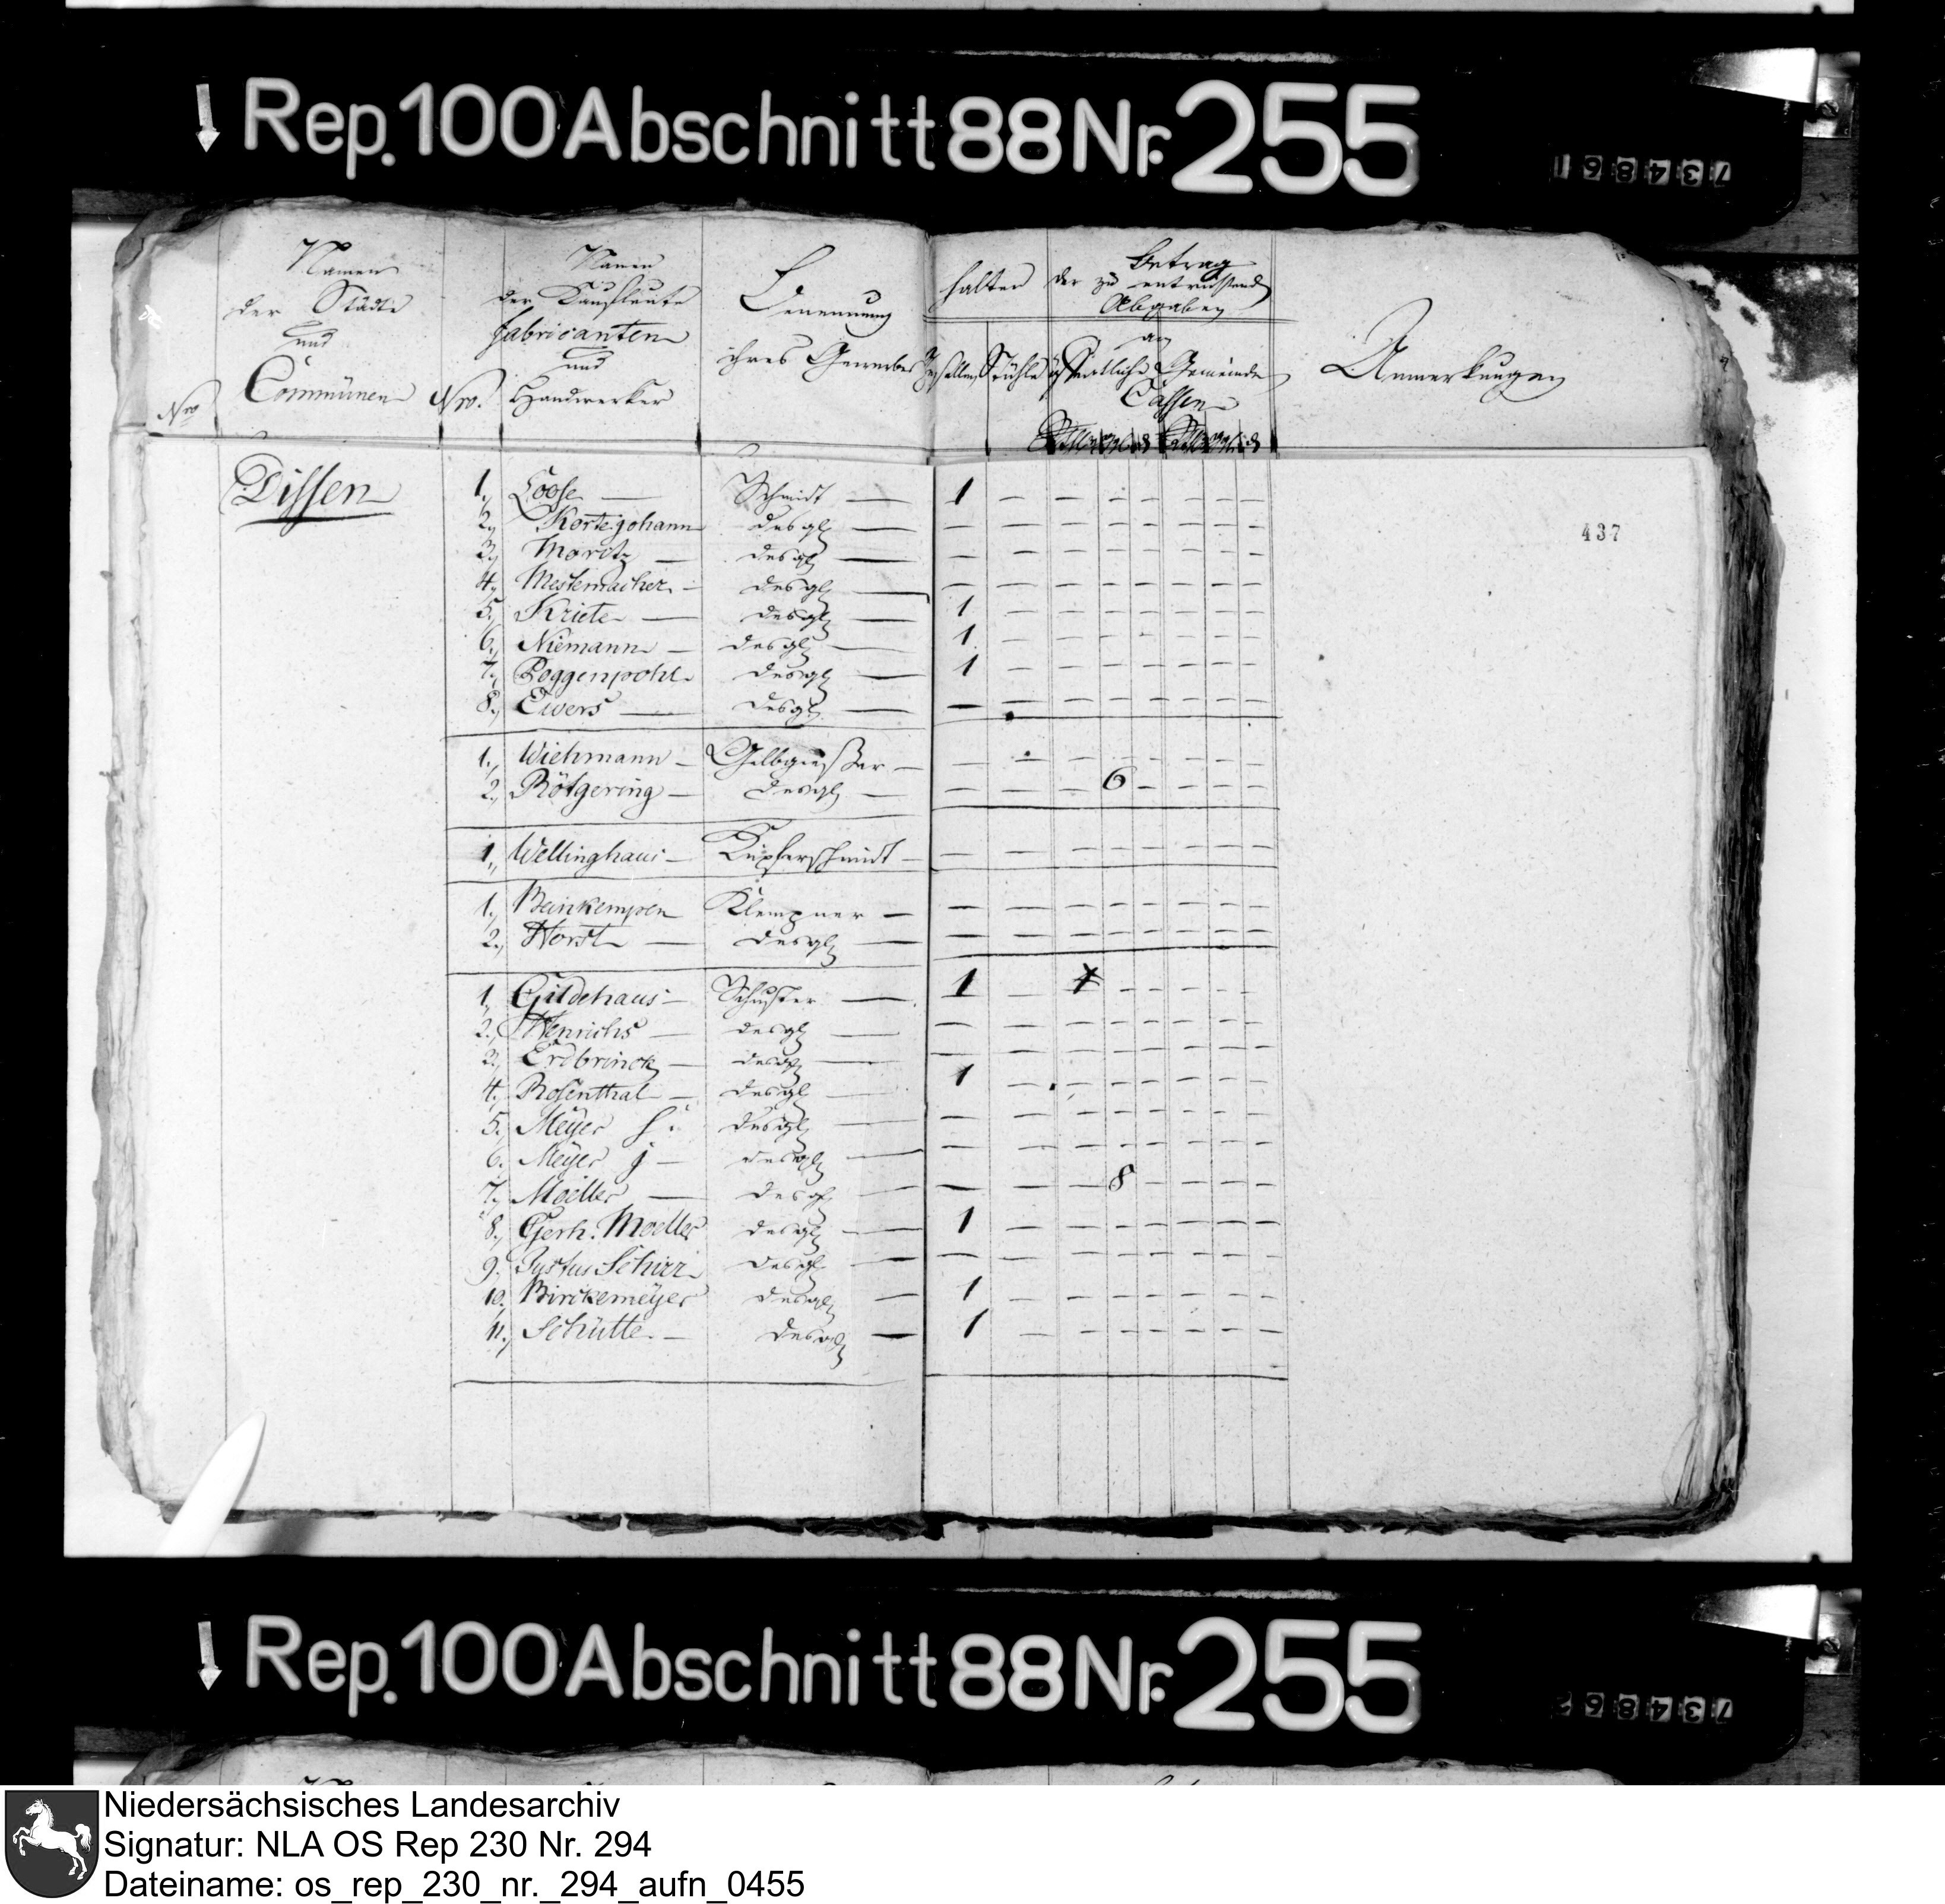 Rep. 100 Abschnitt 88 Nr. 255
734861
Nro
Namen
der Städte
und
Commünen
Nro.
Namen
der Kaufleute
fabricanten
und
Handwerker
Benennung
ihres Gewerbes
halten
Gesellen Stühle
Betrag
der zu entrichtend
Abgaben
an
öffentliche Gemeinde
Cassen
Anmerkungen
437
Dissen
1. Loose — Schmidt — 1 — — — — — — —
2. Kortejohann desgl — — — — — — — — —
3. Moritz — desgl — — — — — — — — —
4. Mestemacher — desgl — — — — — — — — —
5. Kriete — desgl — 1 — — — — — — —
6. Niemann — desgl — 1 — — — — — — —
7. Poggenpohl desgl — 1 — — — — — — —
8. Ewers — desgl — — — — — — — — —
1. Wiehmann — Gelbgießer — — — — — — — — —
2. Rötgering — desgl — — — — 6 — — — —
1. Wellinghaus — Kupferschmidt — — — — — — — — —
1. Beinkempen Klempner — — — — — — — — —
2. Horst — desgl — — — — — — — — —
1. Gildehaus — Schuster — 1 — 1 — — — — —
2. Henrichs — desgl — — — — — — — — —
3. Erdbrinck — desgl — — — — — — — — —
4. Rosenthal — desgl — 1 — — — — — — —
5. Meÿer S. desgl — — — — — — — — —
6. Meÿer j — desgl — — — — — — — — —
7. Moeller — desgl — — — — 8 — — — —
8. Gerh. Moeller desgl — 1 — — — — — — —
9. Justus Schirr desgl — — — — — — — — —
10. Birckemeÿer desgl — 1 — — — — — — —
11. Schütte — desgl — 1 — — — — — — —
Rep. 100 Abschnitt 88 Nr. 255
734862
Niedersächsisches Landesarchiv
Signatur: NLA OS Rep 230 Nr. 294
Dateiname: os_rep_230_nr._294_aufn_0455